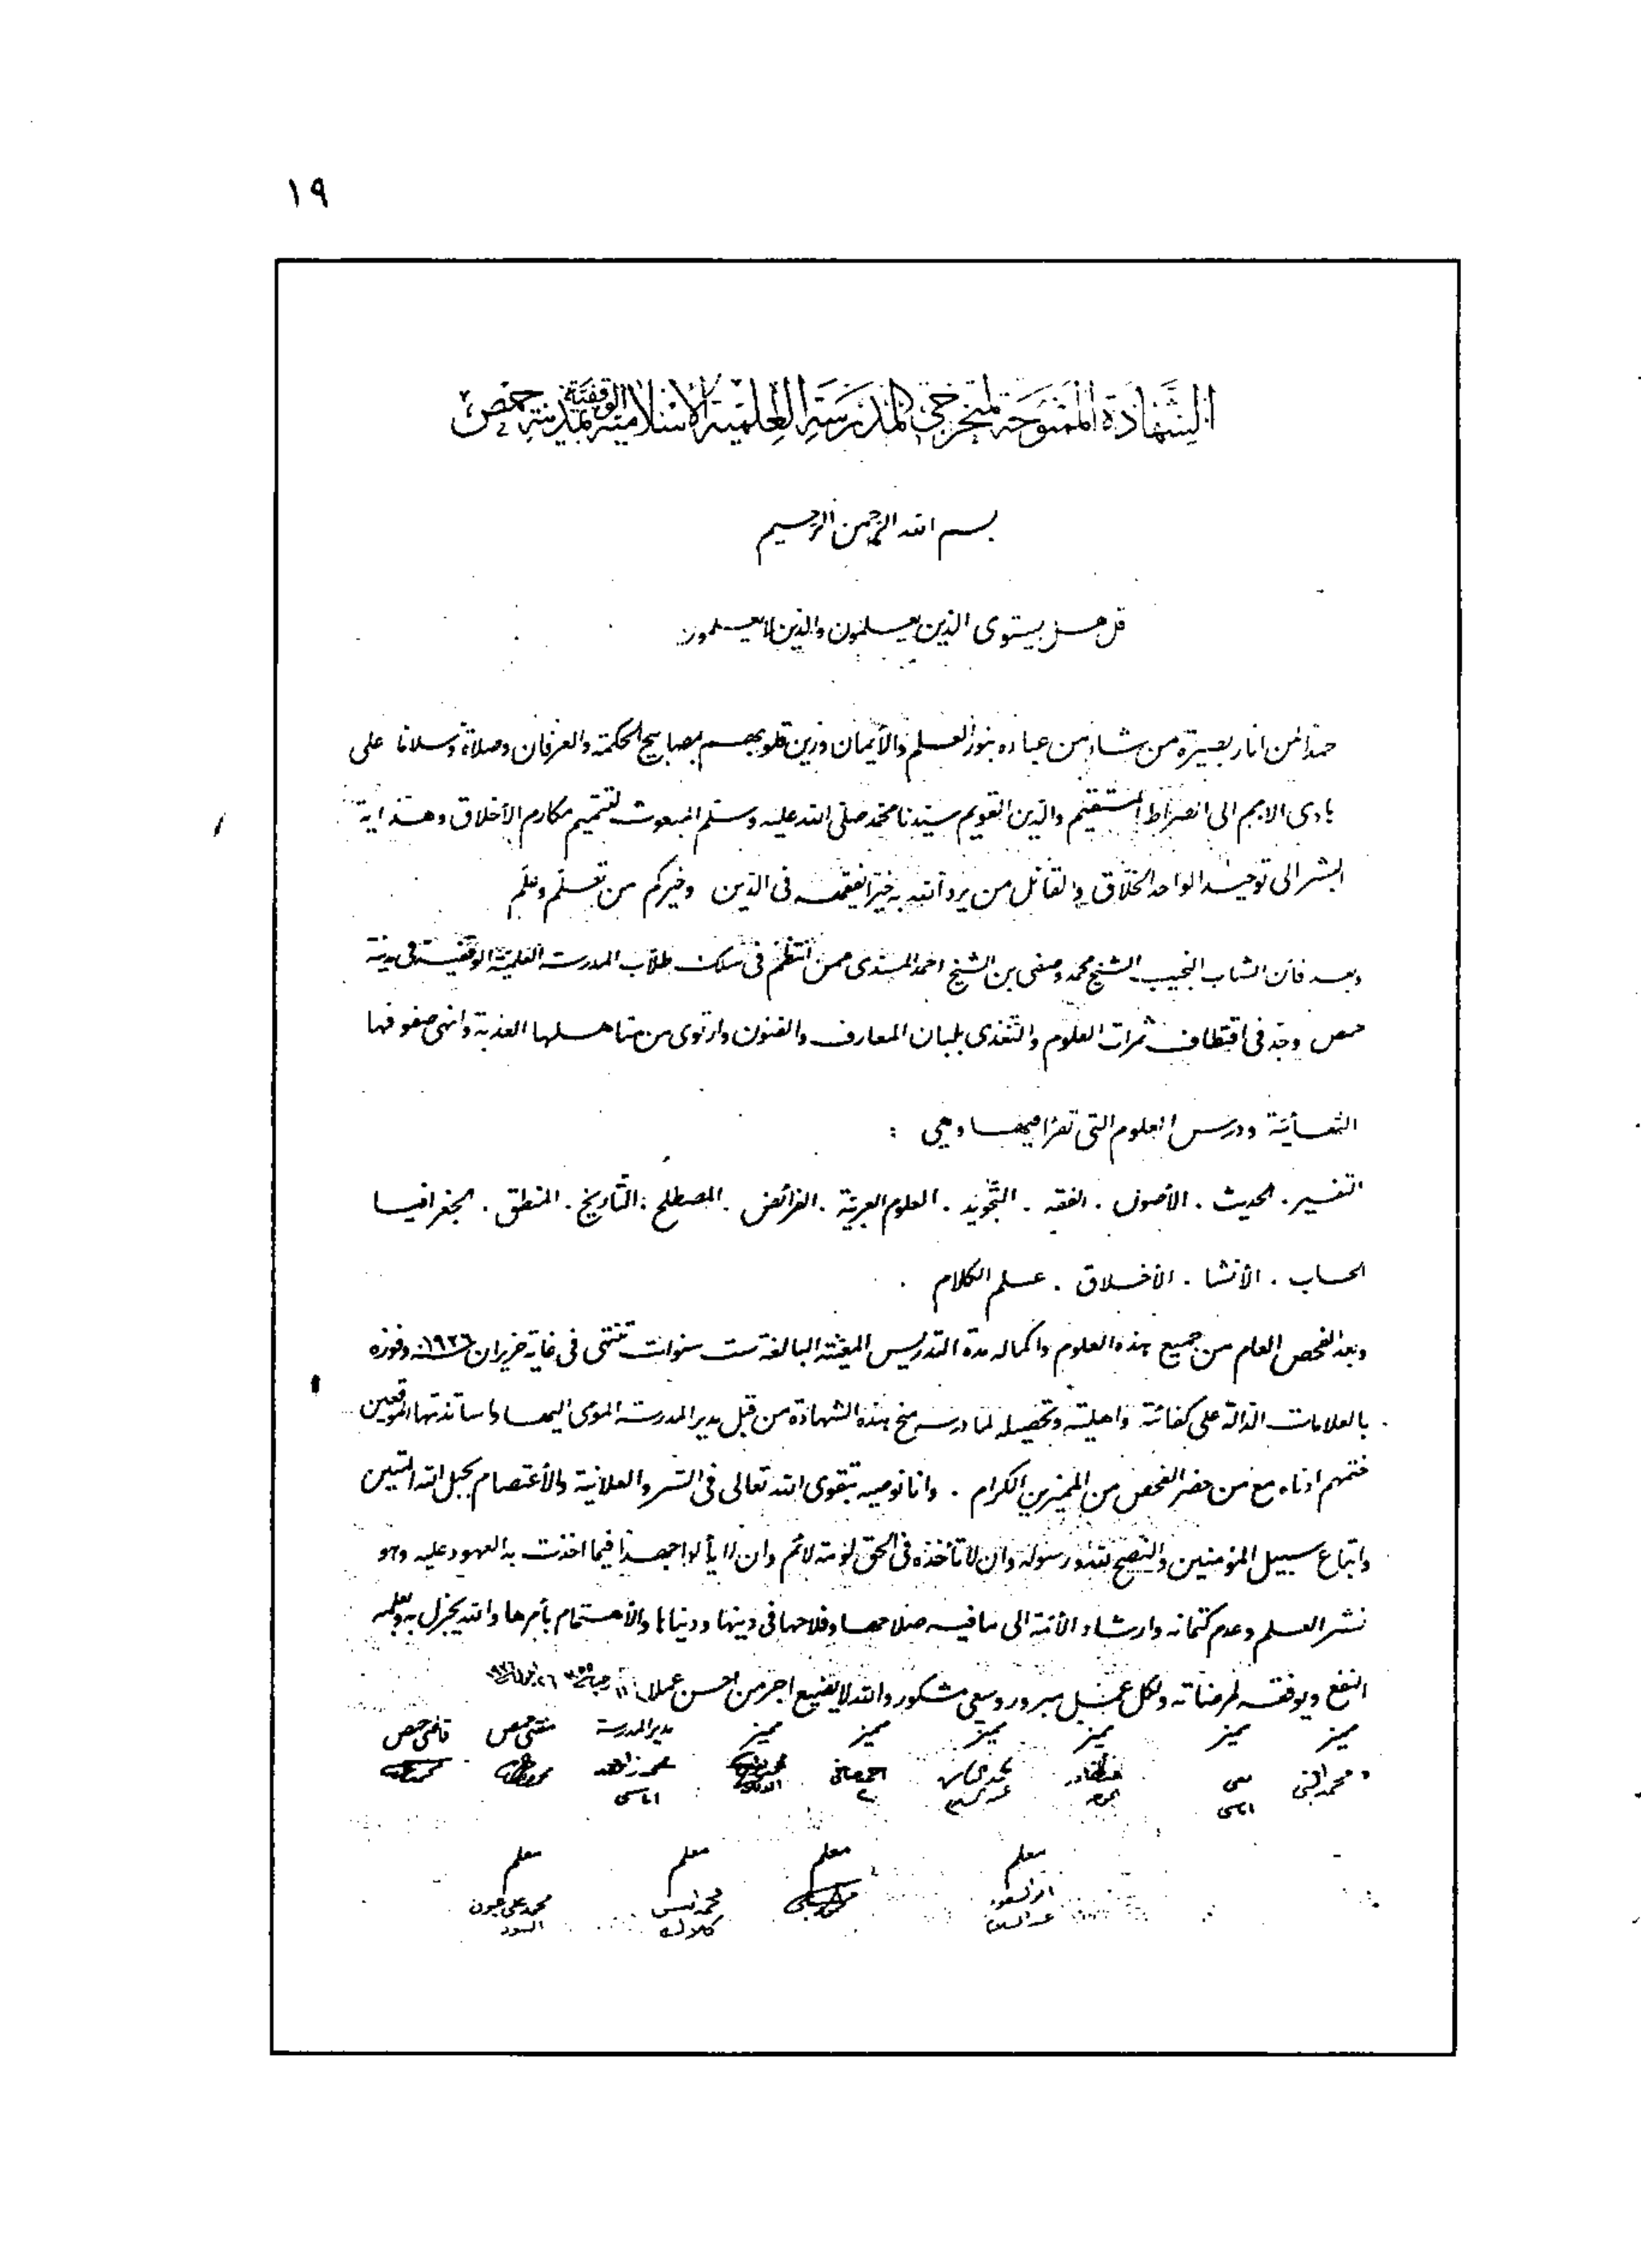 ١٩
الشهادة الممنوحة لمتخرجي المدرسة العلمية الاسلامية الوقفية بمدينة حمص
بسم الله الرحمن الرحيم
قل هل يستوى الذين يعلمون والذين لا يعلمون
حمدا لمن انار بصيرة من شاء من عباده بنور العلم والأيمان وزين قلوبهم بمصابيح الحكمة والعرفان وصلاة وسلاما على
هادى الامم الى الصراط المستقيم والدين القويم سيدنا محمد صلى الله عليه وسلم المبعوث لتتميم مكارم الأخلاق وهداية
البشر الى توحيد الواحد الخلاق والقائل من يرد الله به خيرا يفقهه فى الدين وخيركم من تعلم وعلم
وبعد فان الشاب النجيب الشيخ محمد وصفى بن الشيخ احمد المسدى ممن انتظم فى سلك طلاب المدرسة العلمية الوقفية فى مدينة
حمص وجد فى اقتطاف ثمرات العلوم والتغذى بلبان المعارف والفنون وارتوى من مناهلها العذبة وانهى صفوفها
ودرس العلوم التى تقرا فيها وهي :
التفسير . الحديث . الأصول . الفقه . التجويد . العلوم العربية . الفرائض . المصطلح . التاريخ . المنطق . الجغرافيا
الحساب . الأنشا . الأخلاق . علم الكلام .
وبعد الفحص العام من جميع هذه العلوم واكماله مدة التدريس المعينة البالغة ست سنوات تنتهى فى غاية حزيران ١٩٢٦ وفوزه
بالعلامات الدالة على كفائته واهليته وتحصيله لما درسه منح هذه الشهادة من قبل مدير المدرسة المومى اليها واساتذتها الموقعين
ختمهم ادناه مع من حضر الفحص من المميزين الكرام . وانا نوصيه بتقوى الله تعالى فى السر والعلانية والأعتصام بحبل الله المتين
واتباع سبيل المؤمنين والنصح لله ورسوله وان لا تأخذه فى الحق لومة لائم وان لا يألوا جهدا فيما اخذت به العهود عليه وهو
نشر العلم وعدم كتمانه وارشاد الأمة الى ما فيه صلاحها وفلاحها فى دينها ودنياها والأهتمام بأمرها والله يجزل به وبعلمه
النفع ويوفقه لمرضاته ولكل عمل مبرور وسعي مشكور والله لا يضيع اجر من احسن عملا
مميز مميز مميز مميز مميز مميز مدير المدرسة مفتى حمص قاضى حمص
محمد زاهد
الاتاسى
معلم معلم معلم معلم
ابو السعود محمد انيس محمد على عيون
عبد السلام كلاليب السود